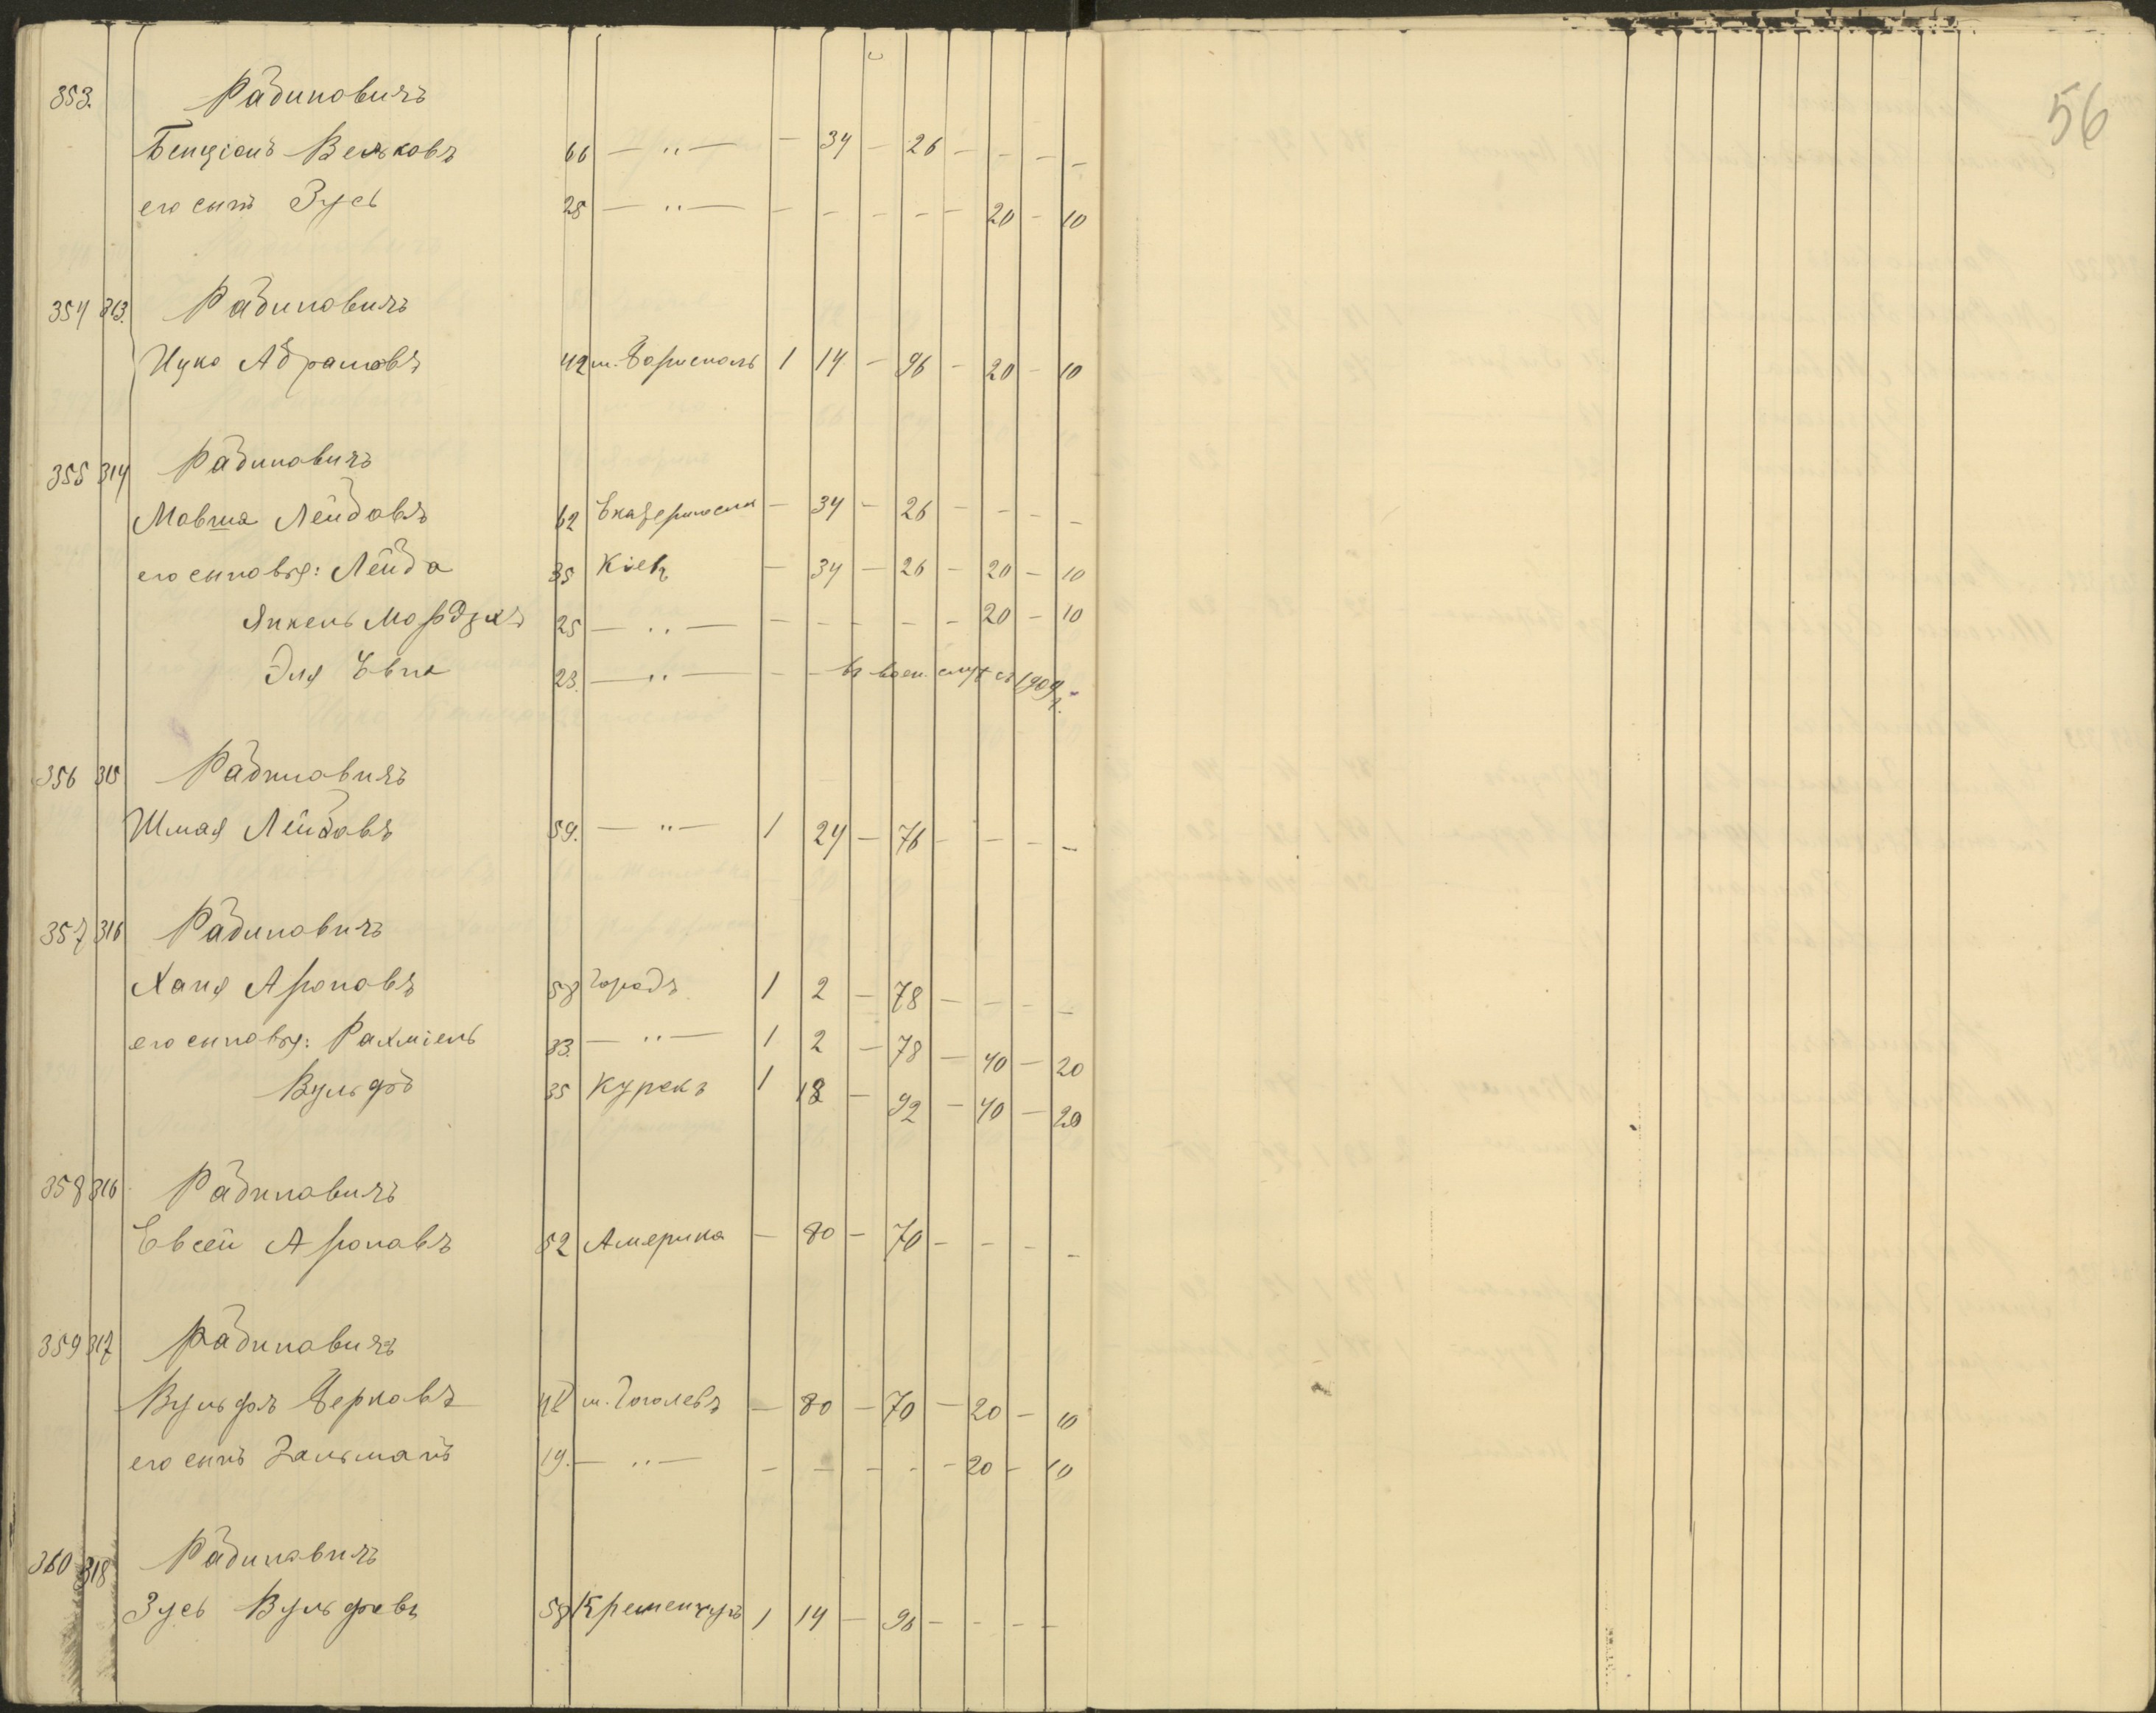 56
353. Рабиновичъ
Бенціонъ Вельковъ 66 — " — — 34 — 26 — — — —
его сынъ Зусь 28 — " — — — — — — 20 — 10
354 313. Рабиновичъ
Ицко Абрамовъ 42 м. Борисполь 1 14 — 96 — 20 — 10
355 314 Рабиновичъ
Мовша Лейбовъ 62 — 34 — 26 — — — —
его сыновья: Лейба 35 Кіевъ — 34 — 26 — 20 — 10
Янкель Мордухъ 25 — " — — — — — — 20 — 10
Эля 23. — " — — — въ воен. служ. съ 1909 г.
356 315 Рабиновичъ
Шмая Лейбовъ 59. — " — 1 24 — 76 — — — —
357 316 Рабиновичъ
Ханя Ароновъ 58 городъ 1 2 — 78 — — — —
его сыновья: Рахміель 33. — " — 1 2 — 78 — 40 — 20
Вульфъ 35 Курскъ 1 18 — 92 — 40 — 20
358 316 Рабиновичъ
Евсей Ароновъ 52 Америка — 80 — 70 — — — —
359 317 Рабиновичъ
Вульфъ Берковъ м. Гоголевъ — 80 — 70 — 20 — 10
его сынъ Зальманъ 19. — " — — — — — — 20 — 10
360 318 Рабиновичъ
Зусь Вульфовъ 58 Кременчугъ 1 14 — 96 — — — —